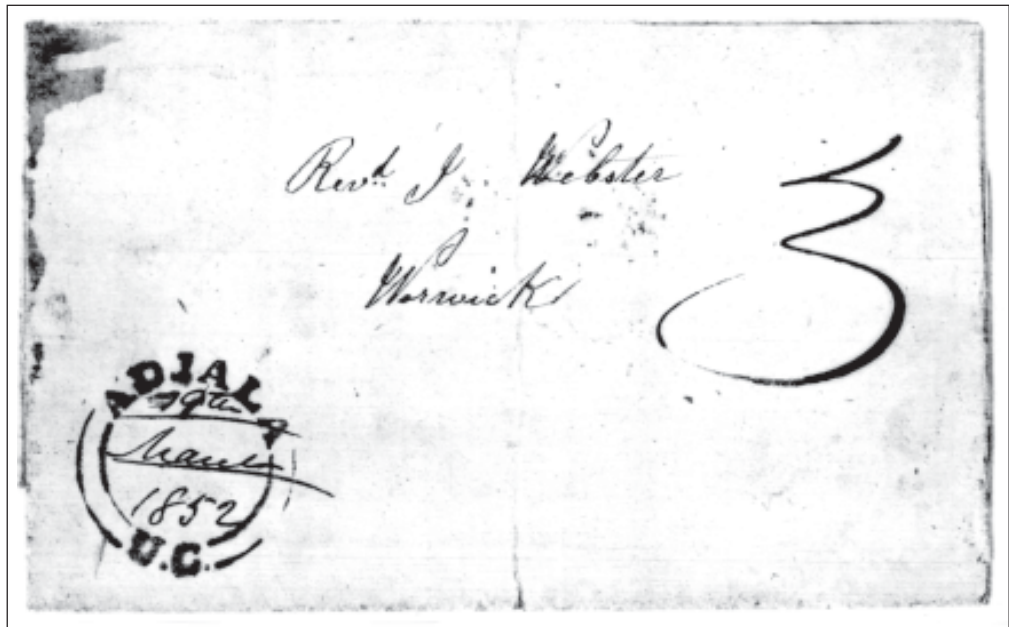 Revd. J. Webster
Warwick
3
ADJALA
March
1852
U.C.